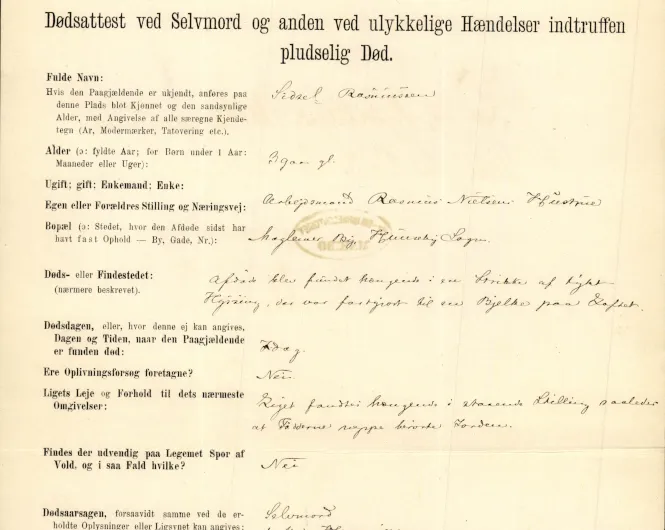 Dødsattest ved Selvmord og anden ved ulykkelige Hændelser indtruffen
pludselig Død.
Fulde Navn:
Hvis den Paagjældende er ukjendt, anføres paa
denne Plads blot Kjønnet og den sandsynlige
Alder, med Angivelse af alle særegne Kjende-
tegn (Ar, Modermærker, Tatovering etc.).
Sidsel Rasmussen
Alder (ɔ: fyldte Aar; for Børn under 1 Aar:
Maaneder eller Uger):
gl.
Ugift; gift; Enkemand; Enke:
Egen eller Forældres Stilling og Næringsvej:
Arbejdsmand Rasmus Nielsens Hustrue
Bopæl (ɔ: Stedet, hvor den Afdøde sidst har
havt fast Ophold — By, Gade, Nr.):
By, Sogn.
Døds- eller Findestedet:
(nærmere beskrevet).
Afdøde blev fundet hængende i en Strikke af
der var fastgjort til en Bjelke paa Loftet.
Dødsdagen, eller, hvor denne ej kan angives,
Dagen og Tiden, naar den Paagjældende
er funden død:
Idag.
Ere Oplivningsforsøg foretagne?
Nei
Ligets Leje og Forhold til dets nærmeste
Omgivelser:
Liget fandtes hængende i staaende Stilling saaledes
at neppe berørte Jorden.
Findes der udvendig paa Legemet Spor af
Vold, og i saa Fald hvilke?
Nei
Dødsaarsagen, forsaavidt samme ved de er-
holdte Oplysninger eller Ligsynet kan angives:
Selvmord